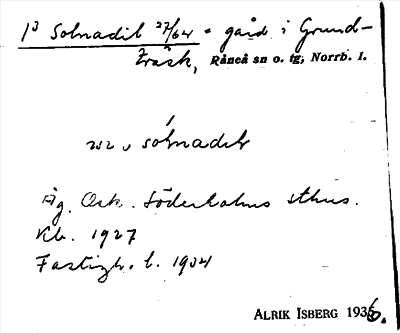 1³ Solnadil 27/64 = gård i Grund-
träsk, Råneå sn o. tg, Norrb. l.
sólnadɩlr
Äg. Osk. Söderholms sthus.
Kb. 1927
Fastigh. l. 1934
ALRIK ISBERG 1936.